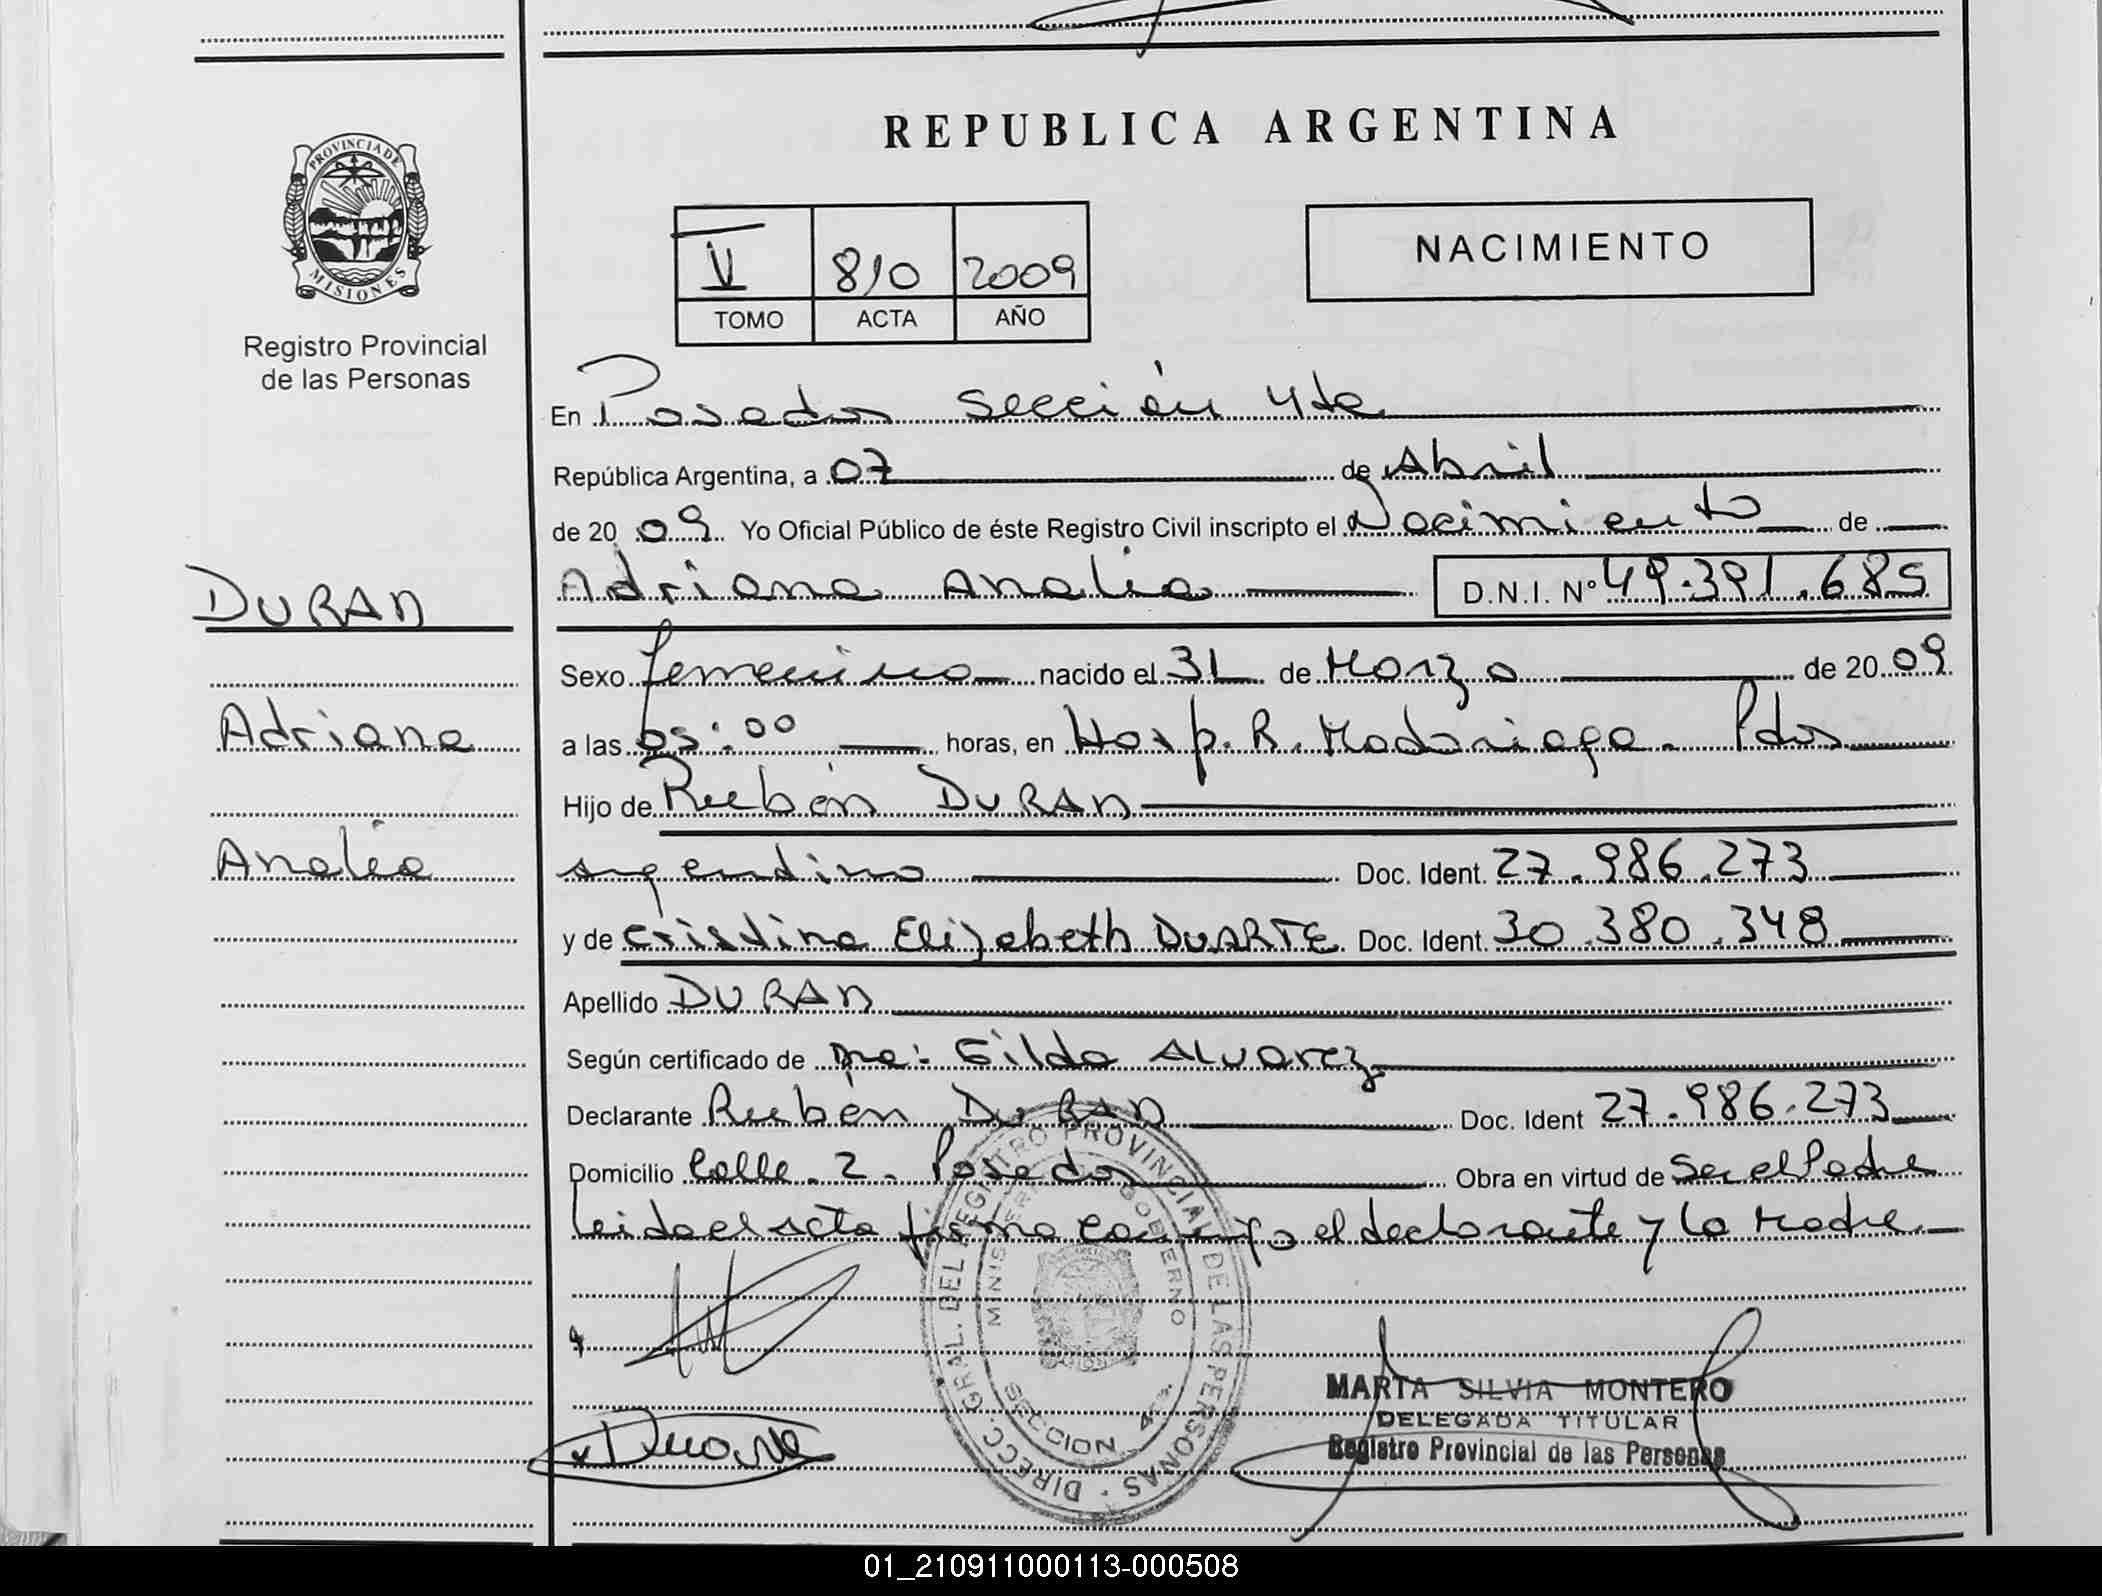 REPUBLICA ARGENTINA
PROVINCIA DE
MISIONES
Registro Provincial
de las Personas
V 810 2009
TOMO ACTA AÑO
NACIMIENTO
En Posadas Sección 4ta
República Argentina, a 07 de Abril
de 2009 Yo Oficial Público de éste Registro Civil inscripto el Nacimiento de
DURAN
Adriana Analia D.N.I. Nº 49.391.685
Sexo femenino nacido el 31 de Marzo de 2009
Adriana
a las 05:00 horas, en Hosp. R. Madariaga. Pdas
Hijo de Rubén DURAN
Analia
argentino Doc. Ident. 27.986.273
y de Cristina Elizabeth DUARTE Doc. Ident. 30.380.348
Apellido DURAN
Según certificado de Dra: Gilda Alvarez
Declarante Rubén DURAN Doc. Ident 27.986.273
Domicilio Calle. 2. Posadas Obra en virtud de Ser el Padre
Leida el acta firma conmigo el declarante y la Madre
DIRECC. GRAL. DEL REGISTRO PROVINCIAL DE LAS PERSONAS
MINISTERIO GOBIERNO
SECCION 4ta.
Duarte
MARTA SILVIA MONTERO
DELEGADA TITULAR
Registro Provincial de las Personas
01_210911000113-000508